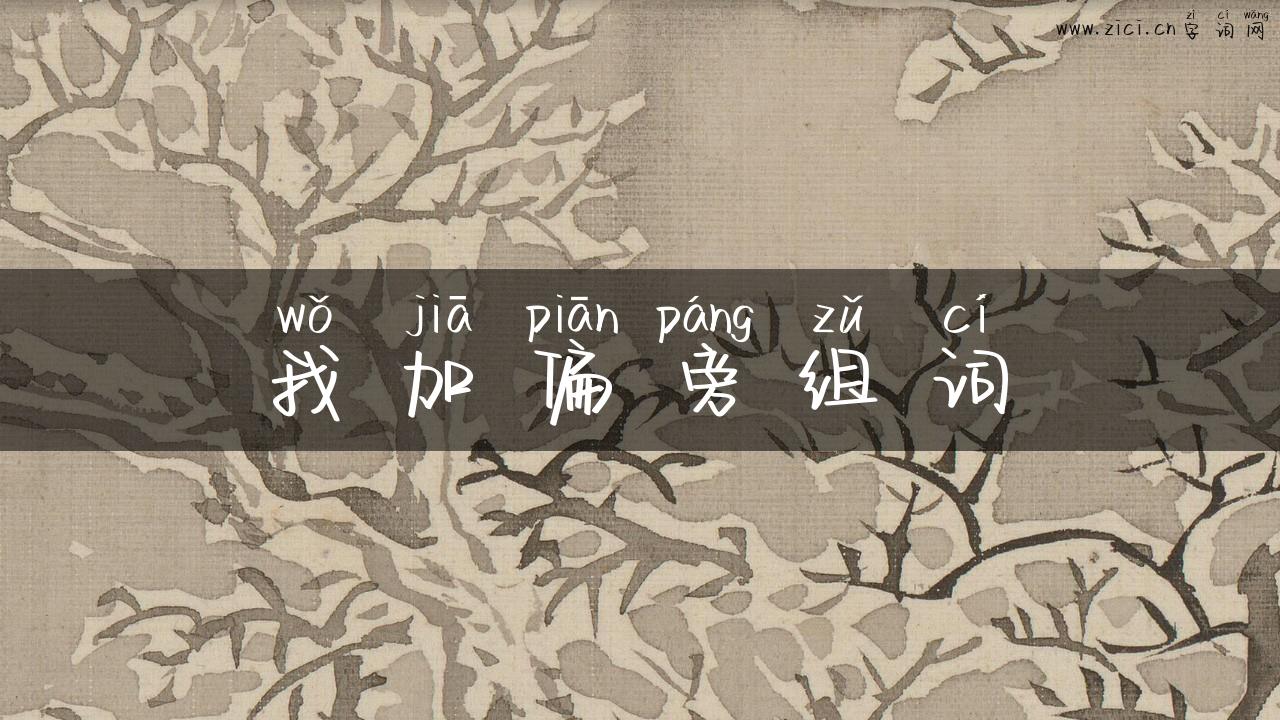 zì cí wǎng
www.zici.cn字词网
wǒ jiā piān páng zǔ cí
我加偏旁组词